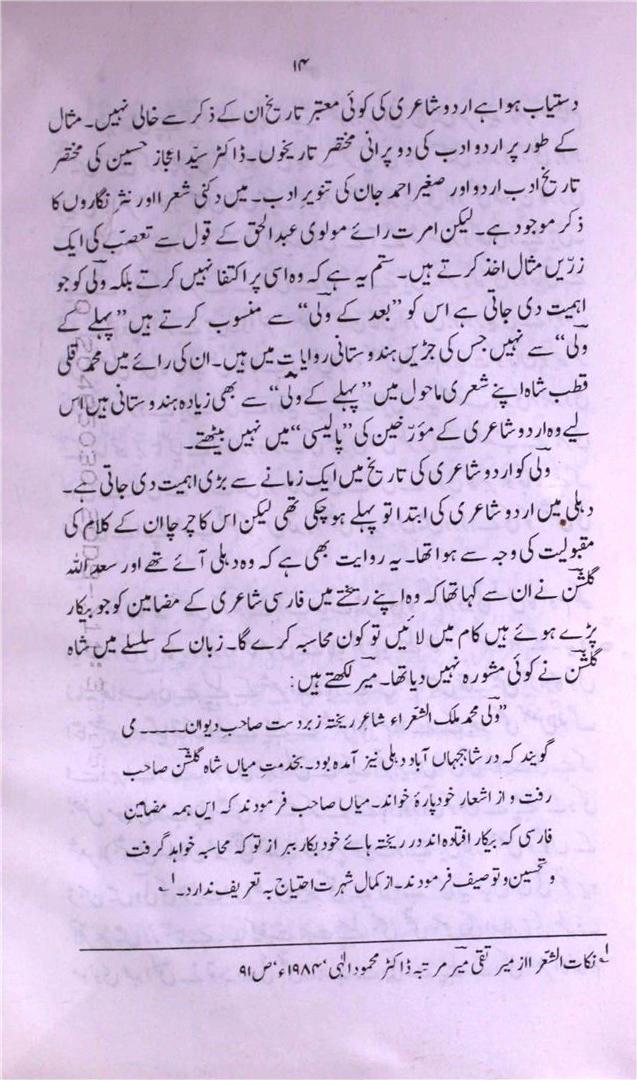 ۱۴
دستیاب ہوا ہے اردو شاعری کی کوئی معتبر تاریخ ان کے ذکر سے خالی نہیں۔ مثال
کے طور پر اردو ادب کی دو پرانی مختصر تاریخوں۔ ڈاکٹر سیّد اعجاز حسین کی مختصر
تاریخ ادب اردو اور صغیر احمد جان کی تنویر ادب۔ میں دکنی شعرا اور نثر نگاروں کا
ذکر موجود ہے۔ لیکن امرت رائے مولوی عبدالحق کے قول سے تعصّب کی ایک
زرّیں مثال اخذ کرتے ہیں۔ ستم یہ ہے کہ وہ اسی پر اکتفا نہیں کرتے بلکہ ولیؔ کو جو
اہمیت دی جاتی ہے اس کو ”بعد کے ولیؔ“ سے منسوب کرتے ہیں ”پہلے کے
ولیؔ“ سے نہیں جس کی جڑیں ہندوستانی روایات میں ہیں۔ ان کی رائے میں محمد قلی
قطب شاہ اپنے شعری ماحول میں ”پہلے کے ولیؔ“ سے بھی زیادہ ہندوستانی ہیں اس
لیے وہ اردو شاعری کے مؤرّخین کی ”پالیسی“ میں نہیں بیٹھتے۔
ولیؔ کو اردو شاعری کی تاریخ میں ایک زمانے سے بڑی اہمیت دی جاتی ہے۔
دہلی میں اردو شاعری کی ابتدا تو پہلے ہو چکی تھی لیکن اس کا چرچا ان کے کلام کی
مقبولیت کی وجہ سے ہوا تھا۔ یہ روایت بھی ہے کہ وہ دہلی آئے تھے اور سعد اللہ
گلشنؔ نے ان سے کہا تھا کہ وہ اپنے ریختے میں فارسی شاعری کے مضامین کو جو بیکار
پڑے ہوئے ہیں کام میں لائیں تو کون محاسبہ کرے گا۔ زبان کے سلسلے میں شاہ
گلشنؔ نے کوئی مشورہ نہیں دیا تھا۔ میرؔ لکھتے ہیں:
”ولیؔ محمد ملک الشعراء شاعر ریختہ زبردست صاحب دیوان۔۔۔۔۔ می
گویند کہ در شاہجہاں آباد دہلی نیز آمدہ بود۔ بخدمتِ میاں شاہ گلشنؔ صاحب
رفت و از اشعار خود پارۂ خواند۔ میاں صاحب فرمودند کہ ایں ہمہ مضامینِ
فارسی کہ بیکار افتادہ اند در ریختہ ہائے خود بکار ببر از تو کہ محاسبہ خواہد گرفت
و تحسین و توصیف فرمودند۔ از کمال شہرت احتیاج بہ تعریف ندارد۔“ ۱؎
۱؎ نکات الشعرا از میر تقی میرؔ مرتبہ ڈاکٹر محمود الٰہی‘ ۱۹۸۴ء‘ ص ۹۱